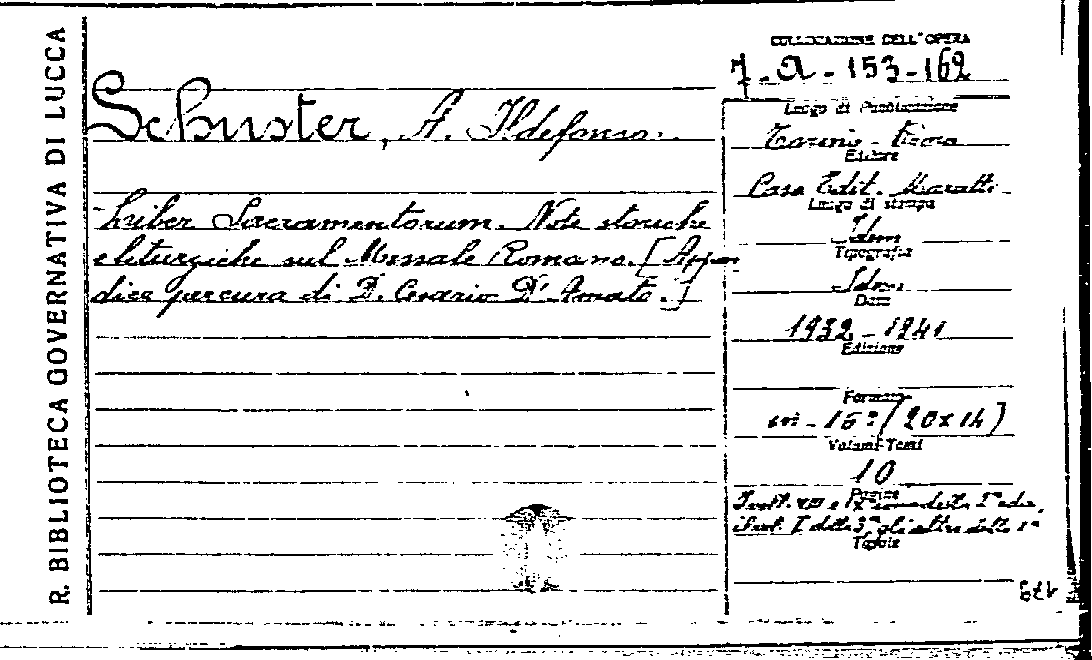 R. BIBLIOTECA GOVERNATIVA DI LUCCA
Schuster, A. Ildefonso.
Liber Sacramentorum. Note storiche
e liturgiche sul Messale Romano. [Appen
dice per cura di D. Cesario D'Amato.]
COLLOCAZIONE DELL'OPERA
7 - A - 153-162
Luogo di Pubblicazione
Torino - Roma
Editore
Casa Edit. Marietti
Luogo di stampa
Idem
Tipografia
Idem
Data
1932 - 1941
Edizione
Formato
in - 16° (20x14)
Volumi-Tomi
10
Pagine
I voll. VIII e IX sono della 1ª ediz.
il vol. I della 3ª gli altri della
Tavole